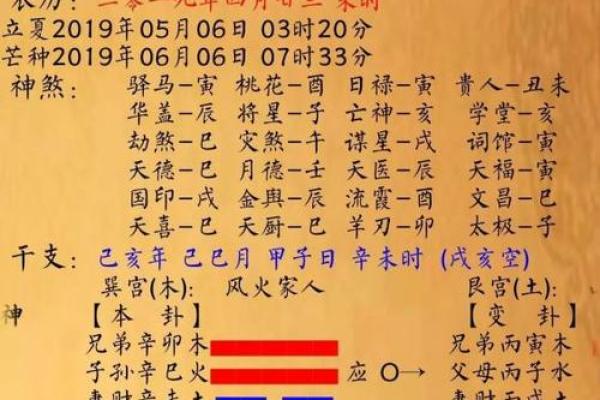 农历：二零一九年四月廿三 未时
立夏2019年05月06日 03时20分
芒种2019年06月06日 07时33分
神煞： 驿马-寅 桃花-酉 日禄-寅 贵人-丑未
华盖-辰 将星-子 亡神-亥 学堂-亥
劫煞-巳 灾煞-午 谋星-戌 词馆-寅
天德-巳 月德-壬 天医-辰 天福-寅
国印-戌 金舆-辰 流霞-酉 文昌-巳
天喜-巳 天厨-巳 羊刃-卯 太极-子
干支：己亥年 己巳月 甲子日 辛未时 (戌亥空)
巽宫(木)： 风火家人 艮宫(土)：
神 【本卦】 【变卦】
兄弟辛卯木 兄弟丙寅木
子孙辛巳火 应 O→ 父母丙子水
妻财辛未土 妻财丙戌土